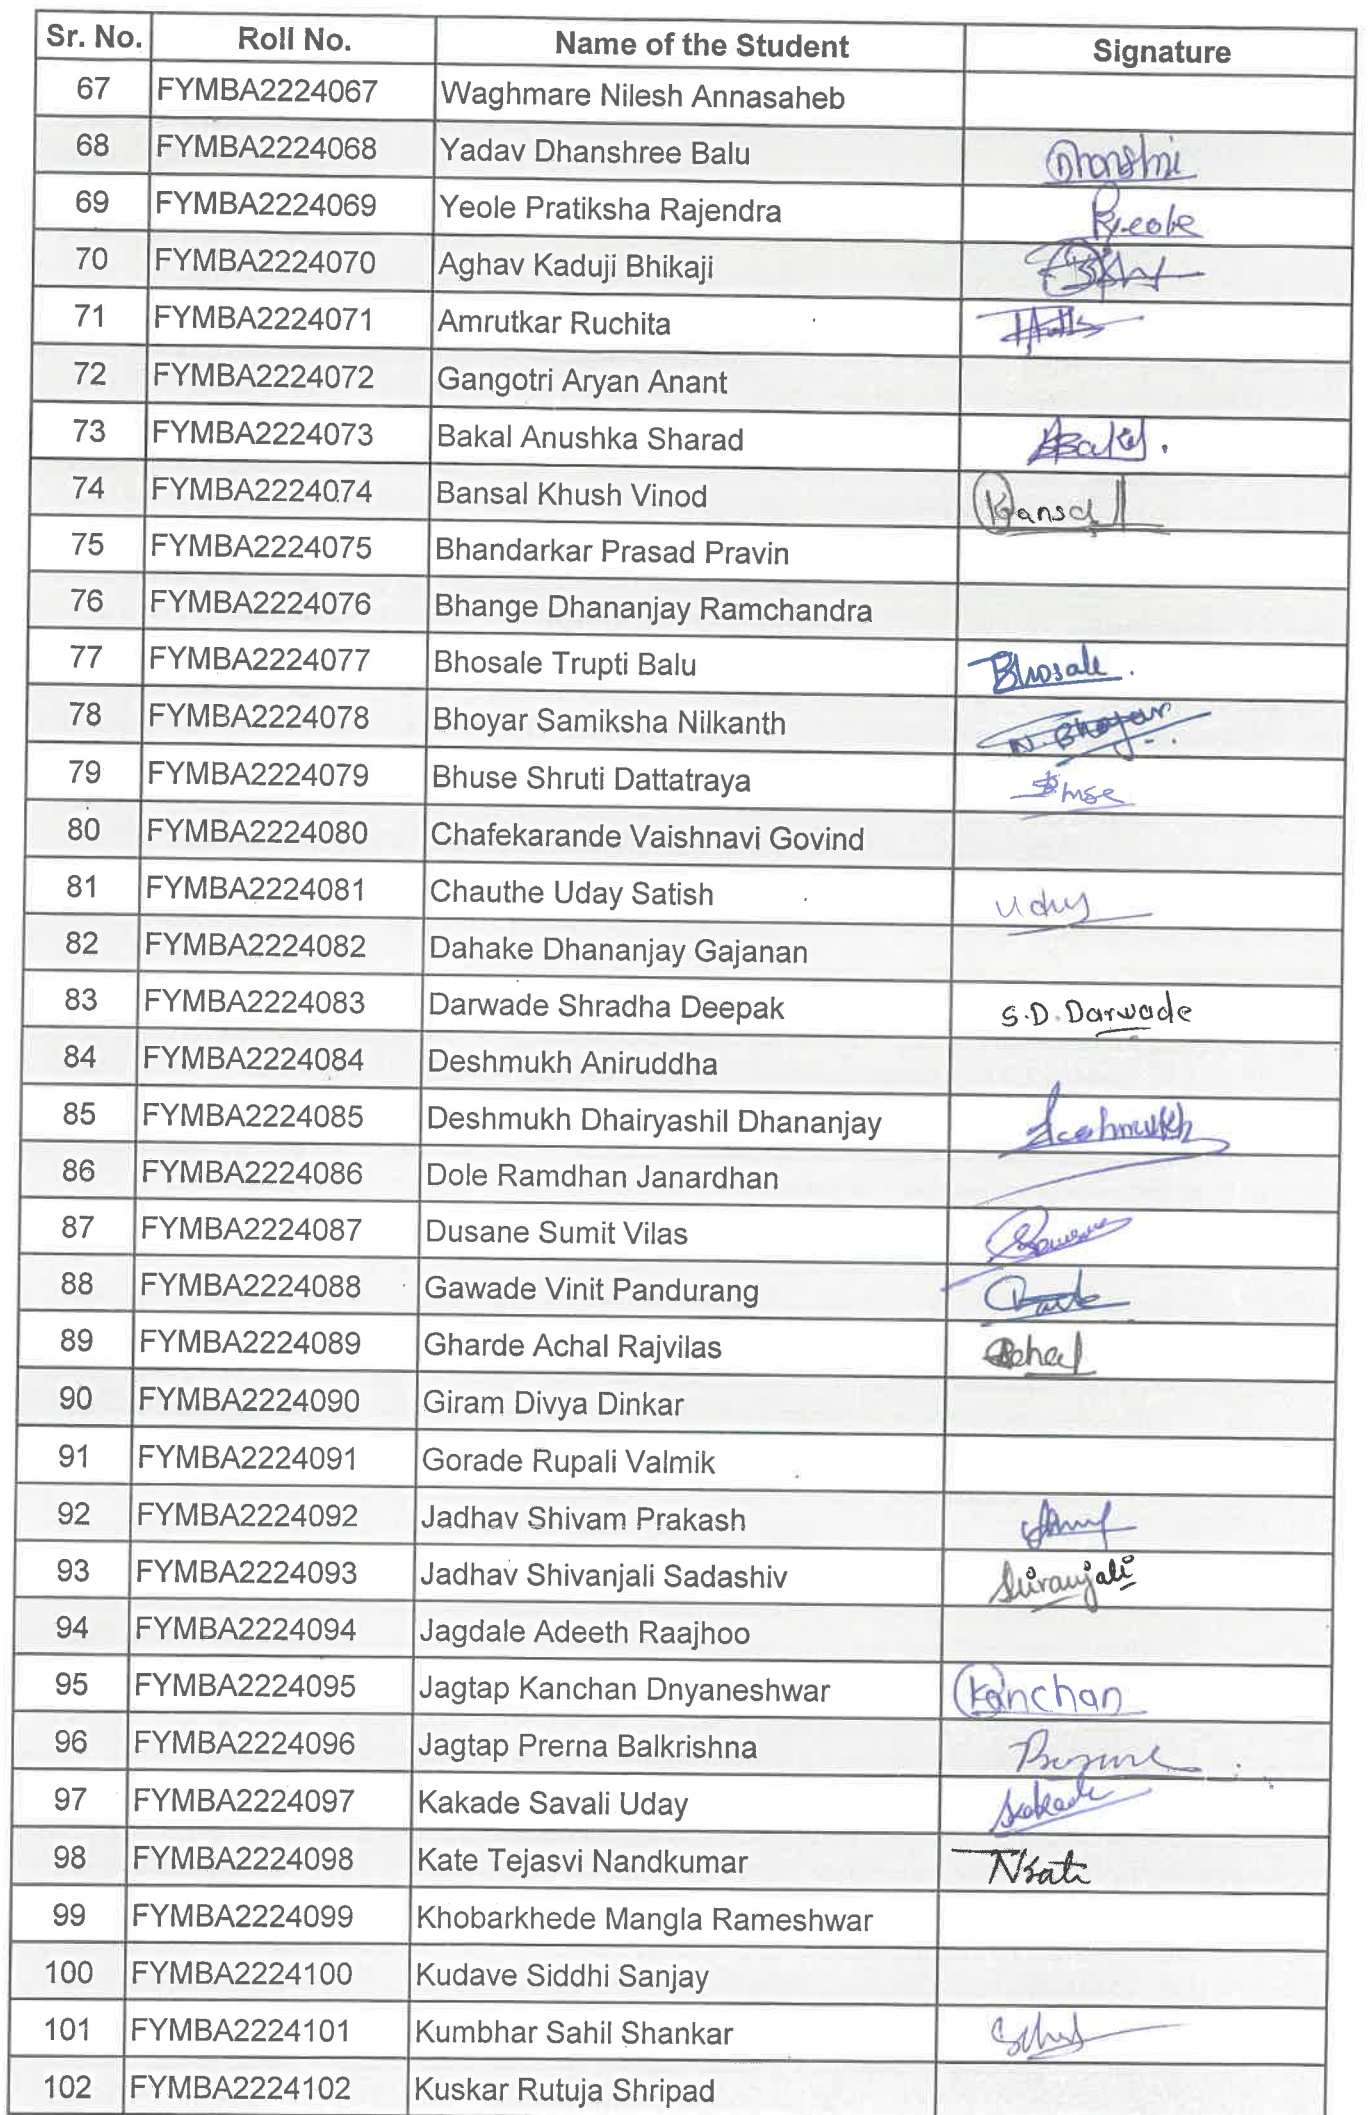 Sr. No. Roll No. Name of the Student Signature
67 FYMBA2224067 Waghmare Nilesh Annasaheb
68 FYMBA2224068 Yadav Dhanshree Balu
69 FYMBA2224069 Yeole Pratiksha Rajendra
70 FYMBA2224070 Aghav Kaduji Bhikaji
71 FYMBA2224071 Amrutkar Ruchita
72 FYMBA2224072 Gangotri Aryan Anant
73 FYMBA2224073 Bakal Anushka Sharad
74 FYMBA2224074 Bansal Khush Vinod
75 FYMBA2224075 Bhandarkar Prasad Pravin
76 FYMBA2224076 Bhange Dhananjay Ramchandra
77 FYMBA2224077 Bhosale Trupti Balu Bhosale.
78 FYMBA2224078 Bhoyar Samiksha Nilkanth N. Bhoyar
79 FYMBA2224079 Bhuse Shruti Dattatraya
80 FYMBA2224080 Chafekarande Vaishnavi Govind
81 FYMBA2224081 Chauthe Uday Satish Uday
82 FYMBA2224082 Dahake Dhananjay Gajanan
83 FYMBA2224083 Darwade Shradha Deepak S.D. Darwade
84 FYMBA2224084 Deshmukh Aniruddha
85 FYMBA2224085 Deshmukh Dhairyashil Dhananjay
86 FYMBA2224086 Dole Ramdhan Janardhan
87 FYMBA2224087 Dusane Sumit Vilas
88 FYMBA2224088 Gawade Vinit Pandurang
89 FYMBA2224089 Gharde Achal Rajvilas Achal
90 FYMBA2224090 Giram Divya Dinkar
91 FYMBA2224091 Gorade Rupali Valmik
92 FYMBA2224092 Jadhav Shivam Prakash
93 FYMBA2224093 Jadhav Shivanjali Sadashiv
94 FYMBA2224094 Jagdale Adeeth Raajhoo
95 FYMBA2224095 Jagtap Kanchan Dnyaneshwar Kanchan
96 FYMBA2224096 Jagtap Prerna Balkrishna
97 FYMBA2224097 Kakade Savali Uday
98 FYMBA2224098 Kate Tejasvi Nandkumar
99 FYMBA2224099 Khobarkhede Mangla Rameshwar
100 FYMBA2224100 Kudave Siddhi Sanjay
101 FYMBA2224101 Kumbhar Sahil Shankar
102 FYMBA2224102 Kuskar Rutuja Shripad